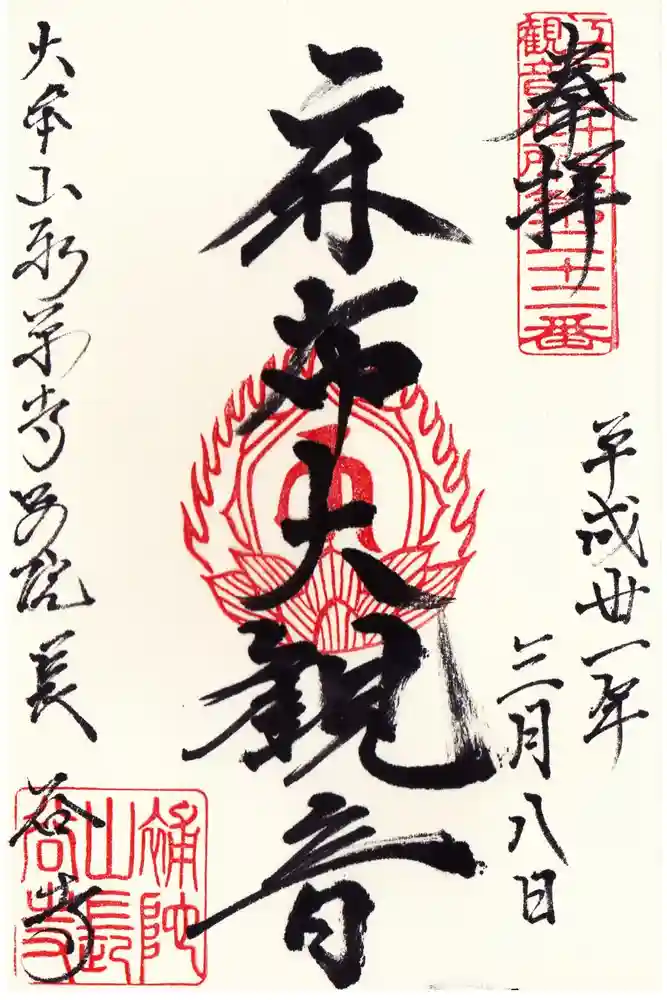 奉拝
江戸三十三
観音札所第二十二番
平成丗一年
三月八日
麻布大観音
大本山永平寺別院長谷寺
補陀
山長
谷寺